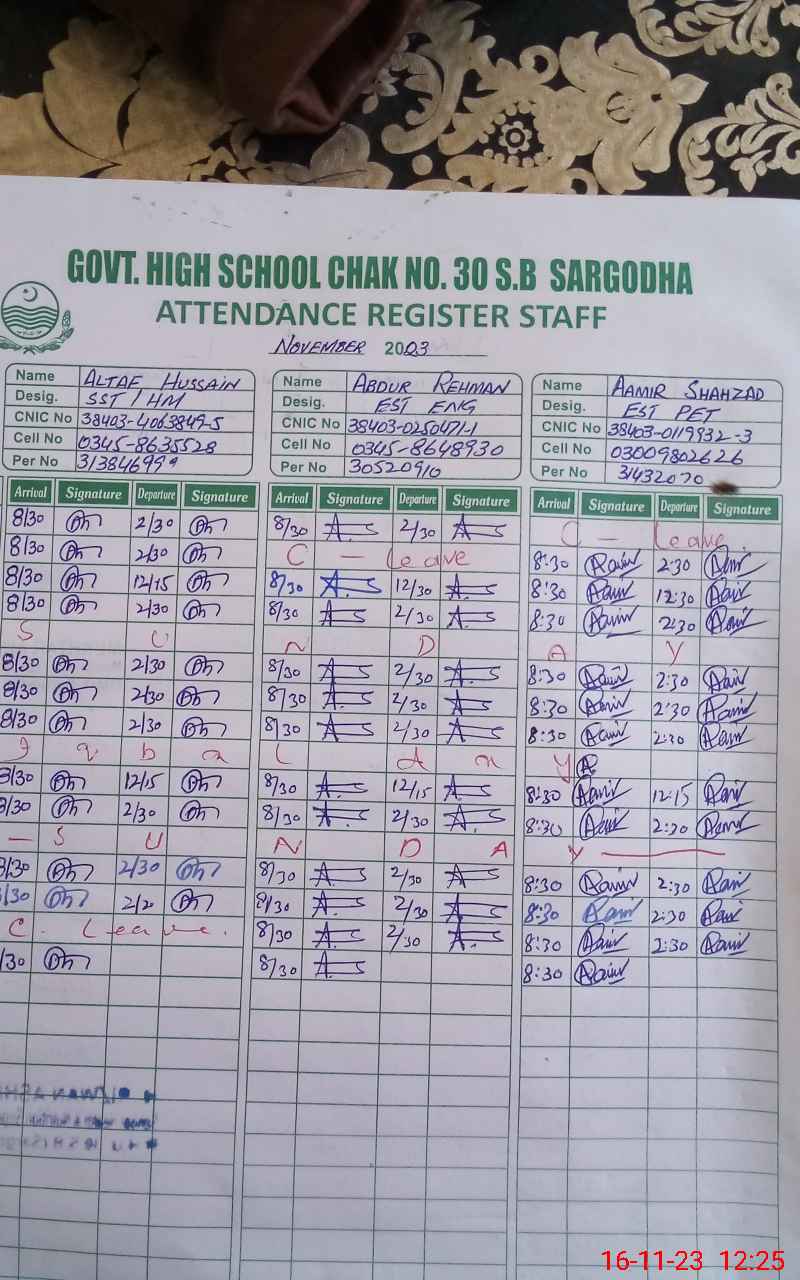 GOVT. HIGH SCHOOL CHAK NO. 30 S.B SARGODHA
ATTENDANCE REGISTER STAFF
NOVEMBER 2023
Name ALTAF HUSSAIN Name ABDUR REHMAN Name AAMIR SHAHZAD
Desig. SST / HM Desig. EST ENG Desig. EST PET
CNIC No 38403-4063849-5 CNIC No 38403-0250471-1 CNIC No 38403-0119932-3
Cell No 0345-8635528 Cell No 0345-8648930 Cell No 03009802626
Per No 31384699 Per No 30520910 Per No 31432070
Arrival Signature Departure Signature Arrival Signature Departure Signature Arrival Signature Departure Signature
8/30 2/30 8/30 2/30 C - Leave
8/30 2/30 C - Leave 8:30 2:30
8/30 12/15 8/30 12/30 8:30 12:30
8/30 2/30 8/30 2/30 8:30 2:30
S U N D A Y
8/30 2/30 8/30 2/30 8:30 2:30
8/30 2/30 8/30 2/30 8:30 2:30
8/30 2/30 8/30 2/30 8:30 2:30
I q b a l d a y
8/30 12/15 8/30 12/15 8:30 12:15
8/30 2/30 8/30 2/30 8:30 2:30
- S U N D A Y
8/30 2/30 8/30 2/30 8:30 2:30
8/30 2/20 8/30 2/30 8:30 2:30
C. Leave. 8/30 2/30 8:30 2:30
8/30 8/30 8:30
16-11-23 12:25